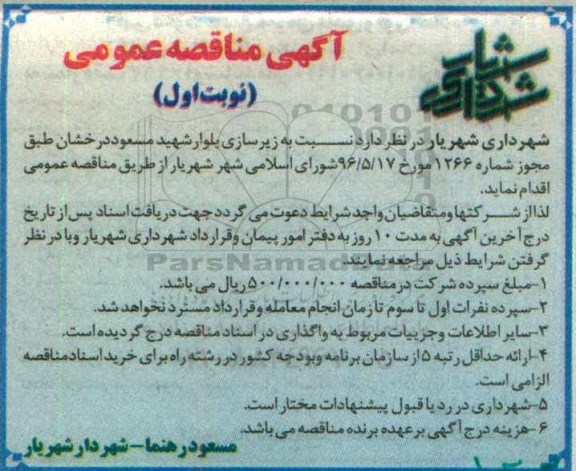 شهرداری شهریار
آگهی مناقصه عمومی
(نوبت اول)
شهرداری شهریار در نظر دارد نسبت به زیرسازی بلوار شهید مسعود درخشان طبق
مجوز شماره ۱۲۶۶ مورخ ۹۶/۵/۱۷ شورای اسلامی شهر شهریار از طریق مناقصه عمومی
اقدام نماید.
لذا از شرکتها و متقاضیان واجد شرایط دعوت می گردد جهت دریافت اسناد پس از تاریخ
درج آخرین آگهی به مدت ۱۰ روز به دفتر امور پیمان و قرارداد شهرداری شهریار و با در نظر
گرفتن شرایط ذیل مراجعه نمایند.
ParsNamadData
۱-مبلغ سپرده شرکت در مناقصه ۵۰۰/۰۰۰/۰۰۰ ریال می باشد.
۲-سپرده نفرات اول تا سوم تا زمان انجام معامله و قرارداد مسترد نخواهد شد.
۳-سایر اطلاعات و جزییات مربوط به واگذاری در اسناد مناقصه درج گردیده است.
۴-ارائه حداقل رتبه ۵ از سازمان برنامه وبودجه کشور در رشته راه برای خرید اسناد مناقصه
الزامی است.
۵-شهرداری در رد یا قبول پیشنهادات مختار است.
۶-هزینه درج آگهی بر عهده برنده مناقصه می باشد.
مسعود رهنما-شهردار شهریار